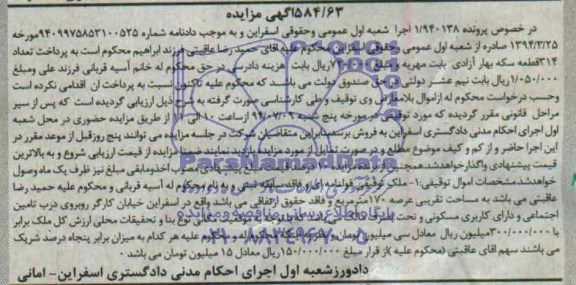 ۵۸۴/۶۳آگهی مزایده
در خصوص پرونده ۱/۹۴۰۱۳۸ اجرا شعبه اول عمومی وحقوقی اسفراین و به موجب دادنامه شماره ۹۴۰۹۹۷۵۸۵۳۱۰۰۵۲۵مورخه
۱۳۹۴/۳/۲۵ صادره از شعبه اول عمومی وحقوقی اسفراین محکوم علیه اقای حمید رضا عاقبتی فرزند ابراهیم محکوم است به پرداخت تعداد
۳۱۴قطعه سکه بهار آزادی بابت مهریه و مبلغ ریال بابت هزینه دادرسی در حق محکوم له خانم آسیه قربانی فرزند علی ومبلغ
۱/۰۵۰/۰۰۰ ریال بابت نیم عشر دولتی در حق صندوق دولت می باشد که محکوم علیه تاکنون نسبت به پرداخت ان اقدامی نکرده است
وحسب درخواست محکوم له ازاموال بلامعارض وی توقیف و طی کارشناسی صورت گرفته به شرح ذیل ارزیابی گردیده است که پس از سیر
مراحل قانونی مقرر گردیده که مورد توقیفی در مورخه پنج شنبه ۹۴/۰۷/۰۹ ازساعت ۱۰ الی از طریق مزایده حضوری در محل شعبه
اول اجرای احکام مدنی دادگستری اسفراین به فروش برسد بنابراین متقاضیان شرکت در جلسه مزایده می توانند پنج روزقبل از موعد مقرر در
این اجرا حاضر و از کم و کیف موضوع مطلع و در صورت تمایل از مورد مزایده بازدید نمایند ضمنا مزایده از قیمت ارزیابی شروع و به بالاترین
قیمت پیشنهادی واگذارخواهدشد همچنین درصد قیمت مبلغ پیشنهادی مصوب اخذومابقی مبلغ نیز ظرف یک ماه وصول
خواهدشد مشخصات اموال توقیفی:۱- ملک توقیفی سابقه ثبتی و به نام محکوم له آسیه قربانی و محکوم علیه حمید رضا
عاقبتی می باشد به مساحت تقریبی عرصه ۱۷۰مترمربع و فاقد حقوق ارتفاقی می باشد واقع در اسفراین خیابان کارگر روبروی درب تامین
اجتماعی و دارای کاربری مسکونی و نوع بنا و تحقیقات محلی ارزش کل ملک برابر
با۳۰۰/۰۰۰/۰۰۰ ریال معادل سی میلیون تومان محکوم له و محکوم علیه هر کدام به میزان برابر پنجاه درصد شریک
می باشند سهم اقای عاقبتی (محکوم علیه )از قرار مبلغ ۱۵۰/۰۰۰/۰۰۰ریال معادل ۱۵ میلیون تومان می باشد
دادورزشعبه اول اجرای احکام مدنی دادگستری اسفراین- امانی
ParsNamadData
پایگاه اطلاع رسانی مناقصه و مزایده
۰۲۱-۸۸۳۴۹۶۷۰-۵